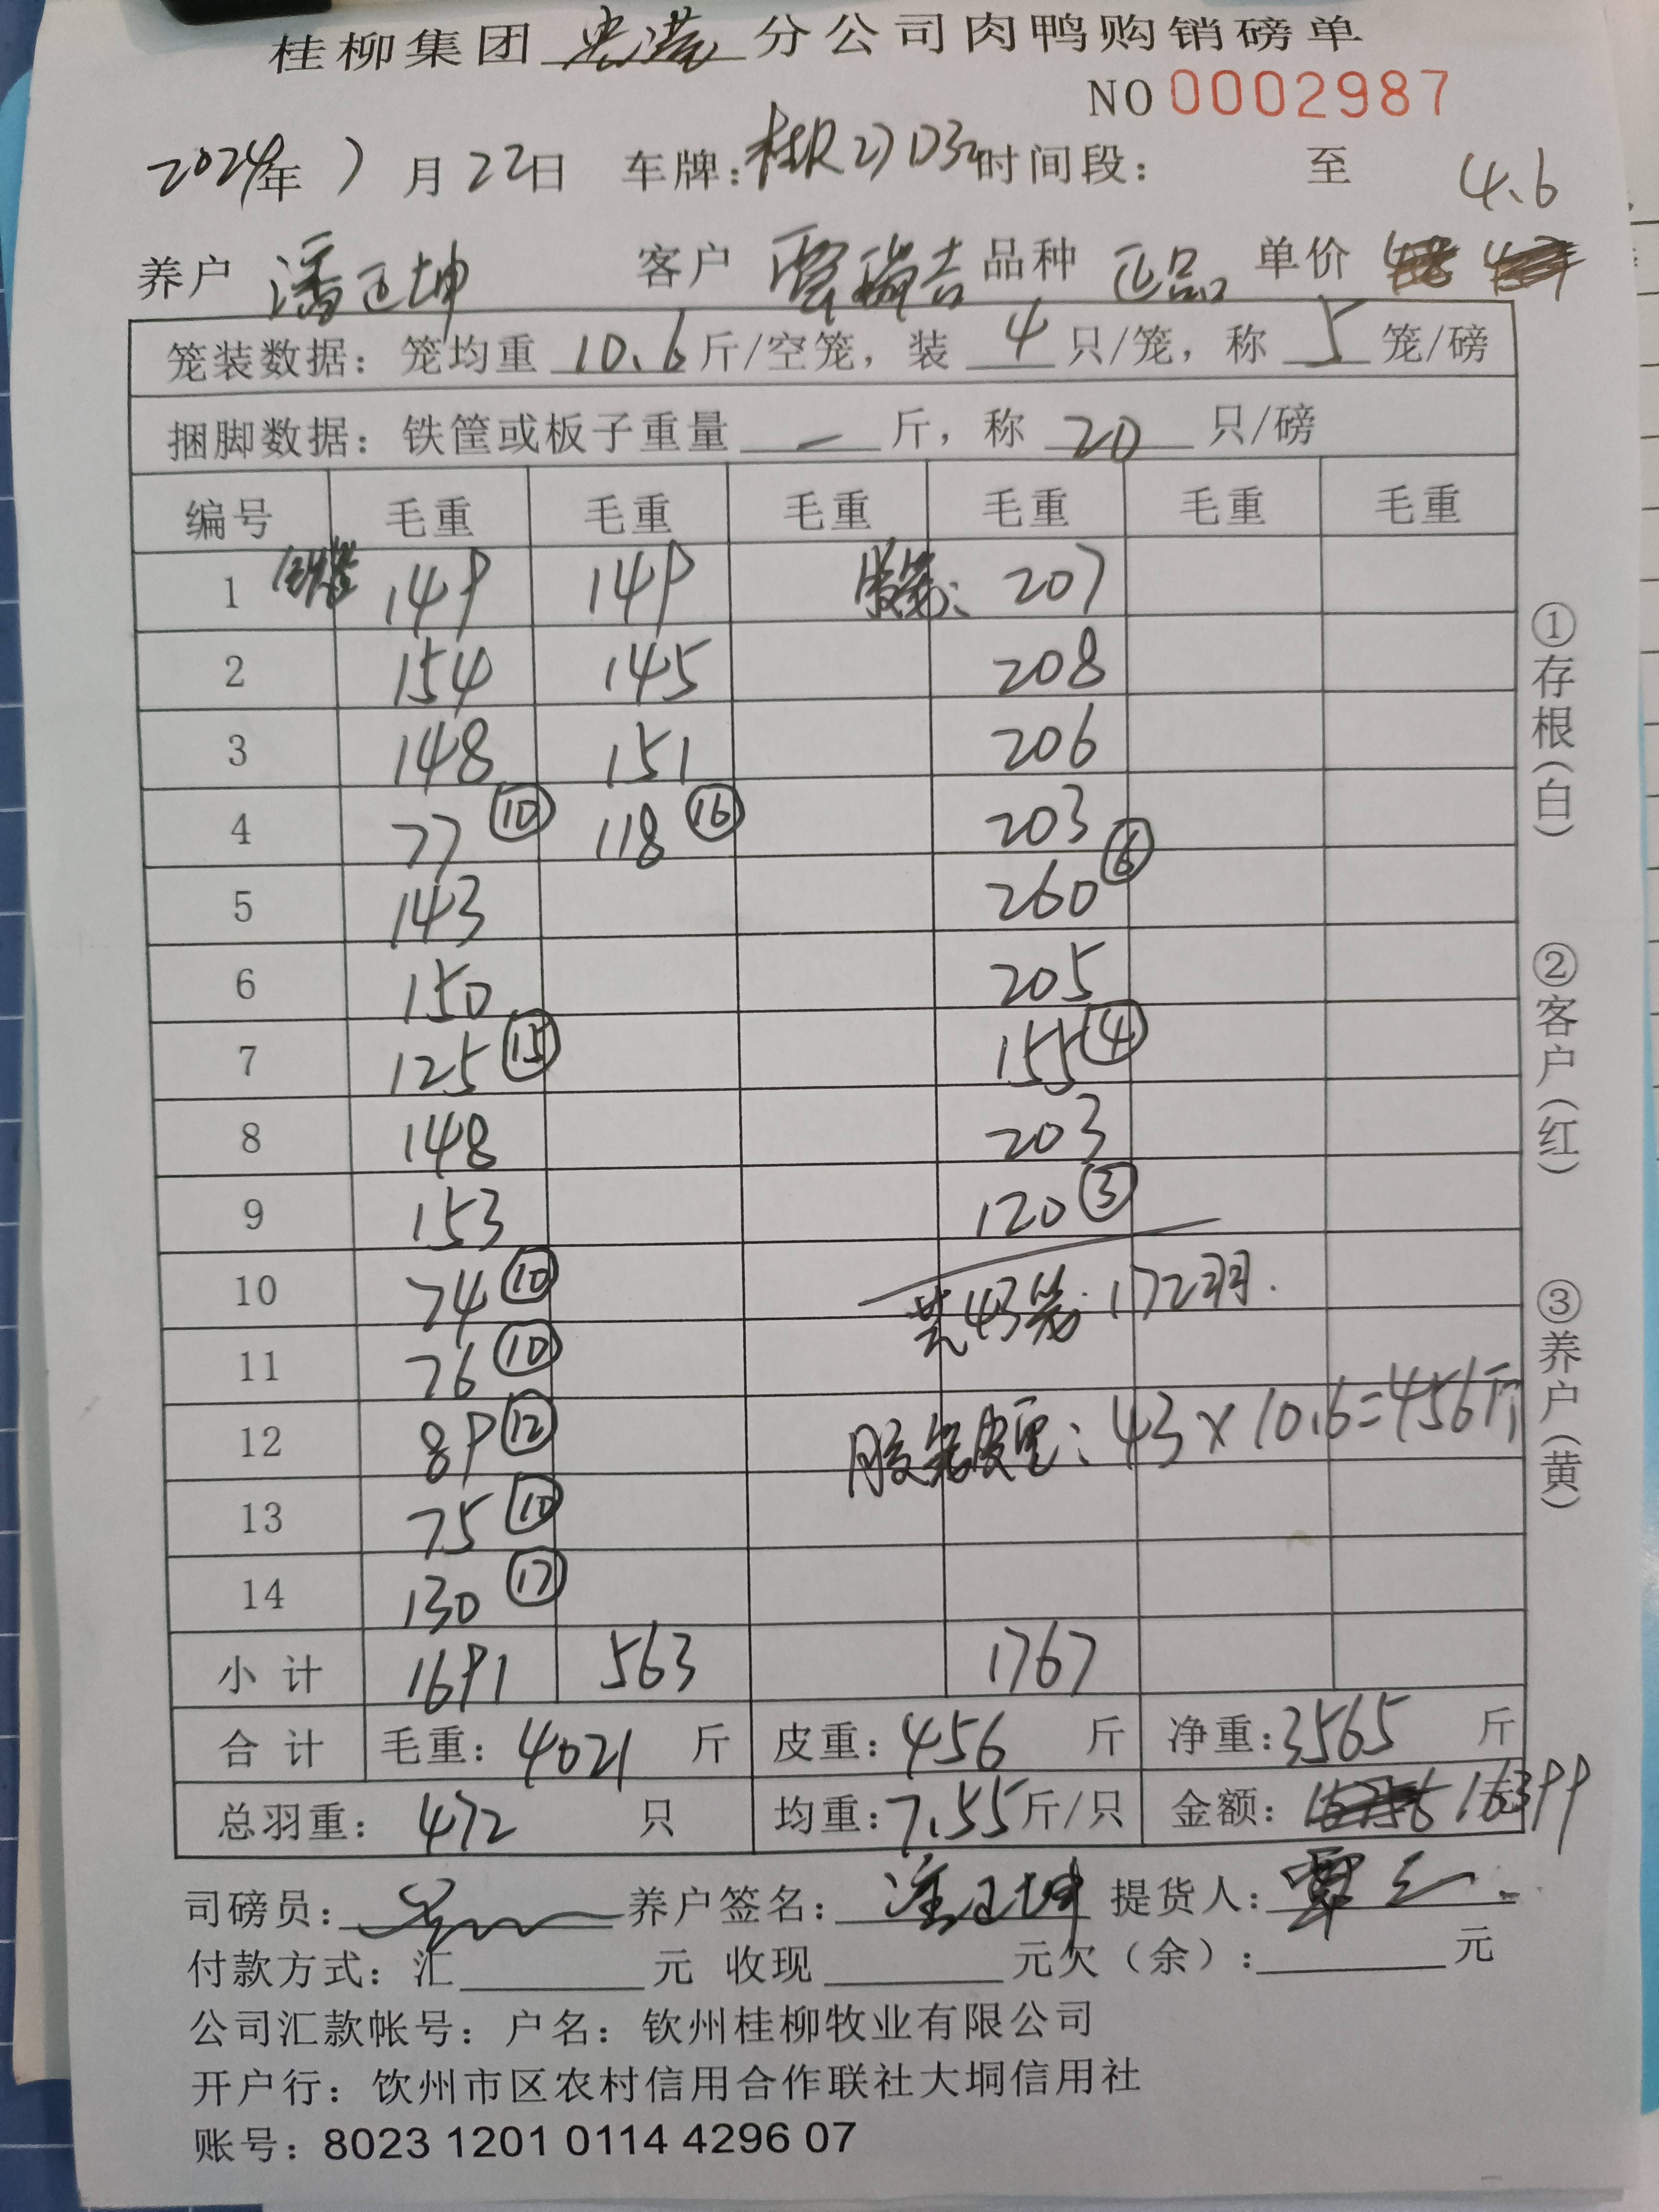 桂柳集团 贵港 分公司肉鸭购销磅单
NO 0002987
2024年 7 月 22日 车牌: 桂R 时间段: 至
4.6
养户 潘正坤 客户 覃瑞吉 品种 正品 单价
笼装数据: 笼均重 10.6 斤/空笼, 装 4 只/笼, 称 5 笼/磅
捆脚数据: 铁筐或板子重量 — 斤, 称 20 只/磅
编号 毛重 毛重 毛重 毛重 毛重 毛重
1 149 149 胶笼: 207
2 154 145 208
3 148 151 206
4 77 ⑩ 118 ⑯ 203
5 143 260 ⑥
6 150 205
7 125 ⑮ 155 ④
8 148 203
9 153 120 ③
10 74 ⑩ 共43笼: 172羽.
11 76 ⑩
12 89 ⑫ 胶笼皮重: 43×10.6=456斤
13 75 ⑩
14 130 ⑰
小 计 1691 563 1767
合 计 毛重: 4021 斤 皮重: 456 斤 净重: 3565 斤
总羽重: 472 只 均重: 7.55 斤/只 金额: 16399
司磅员: 养户签名: 潘正坤 提货人: 覃
付款方式: 汇 元 收现 元欠(余): 元
公司汇款帐号: 户名: 钦州桂柳牧业有限公司
开户行: 钦州市区农村信用合作联社大垌信用社
账号: 8023 1201 0114 4296 07
①存根(白)
②客户(红)
③养户(黄)